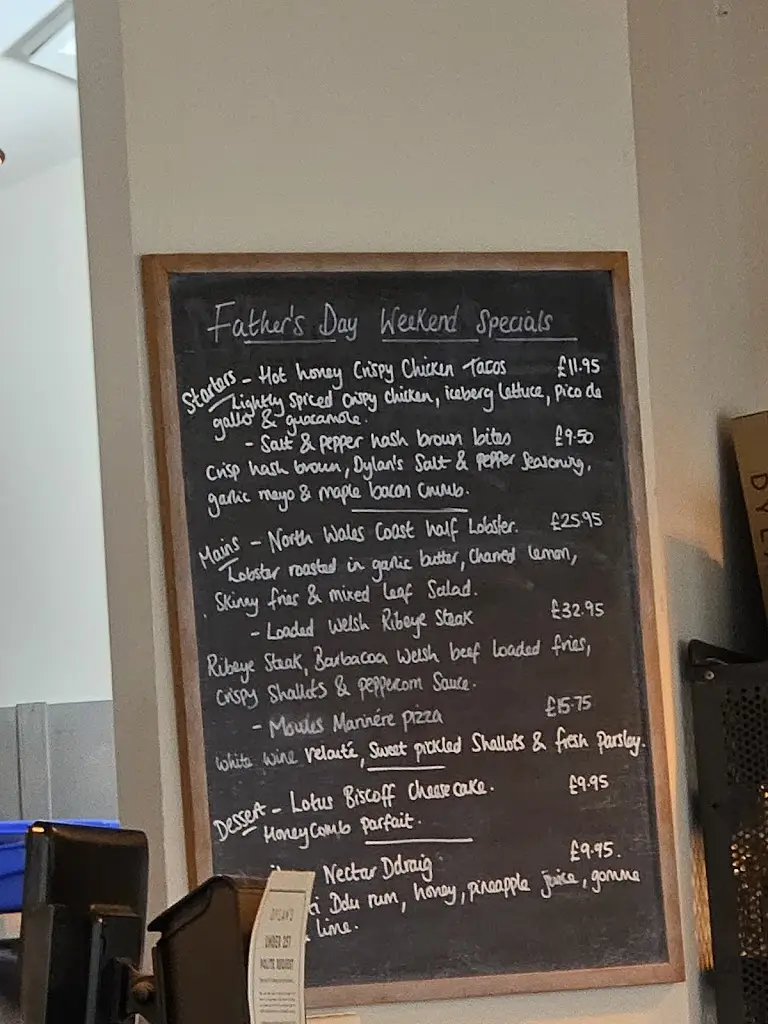 Father's Day Weekend Specials
Starters - Hot honey Crispy Chicken Tacos £11.95
Lightly spiced crispy chicken, iceberg lettuce, pico de
gallo & guacamole.
- Salt & pepper hash brown bites £9.50
Crisp hash brown, Dylan's Salt & pepper Seasoning,
garlic mayo & maple bacon crumb.
Mains - North Wales Coast half Lobster. £25.95
Lobster roasted in garlic butter, charred lemon,
Skinny fries & mixed leaf Salad.
- Loaded Welsh Ribeye Steak £32.95
Ribeye Steak, Barbacoa Welsh beef loaded fries,
Crispy Shallots & peppercorn Sauce.
- Moules Marinére pizza £15.75
White wine velouté, Sweet pickled Shallots & fresh parsley.
Dessert - Lotus Biscoff cheesecake. £9.95
Honeycomb parfait.
Nectar Ddraig £9.95.
Ddu rum, honey, pineapple juice, gomme
lime.
DYLAN'S
UNDER 25?
POLITE REQUEST